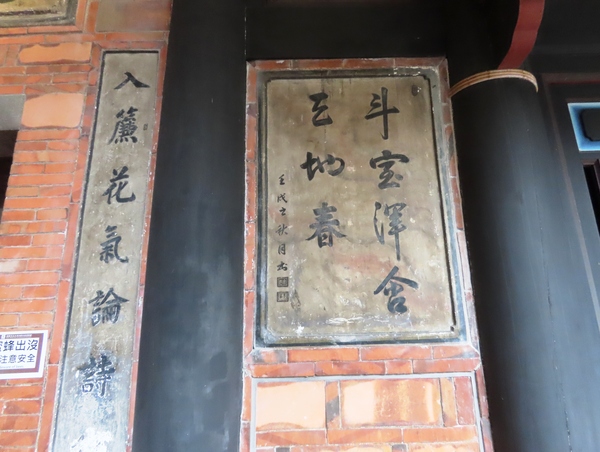 斗室渾含
天地春
壬戌秋月
入簾花氣論詩
蜂出沒
注意安全